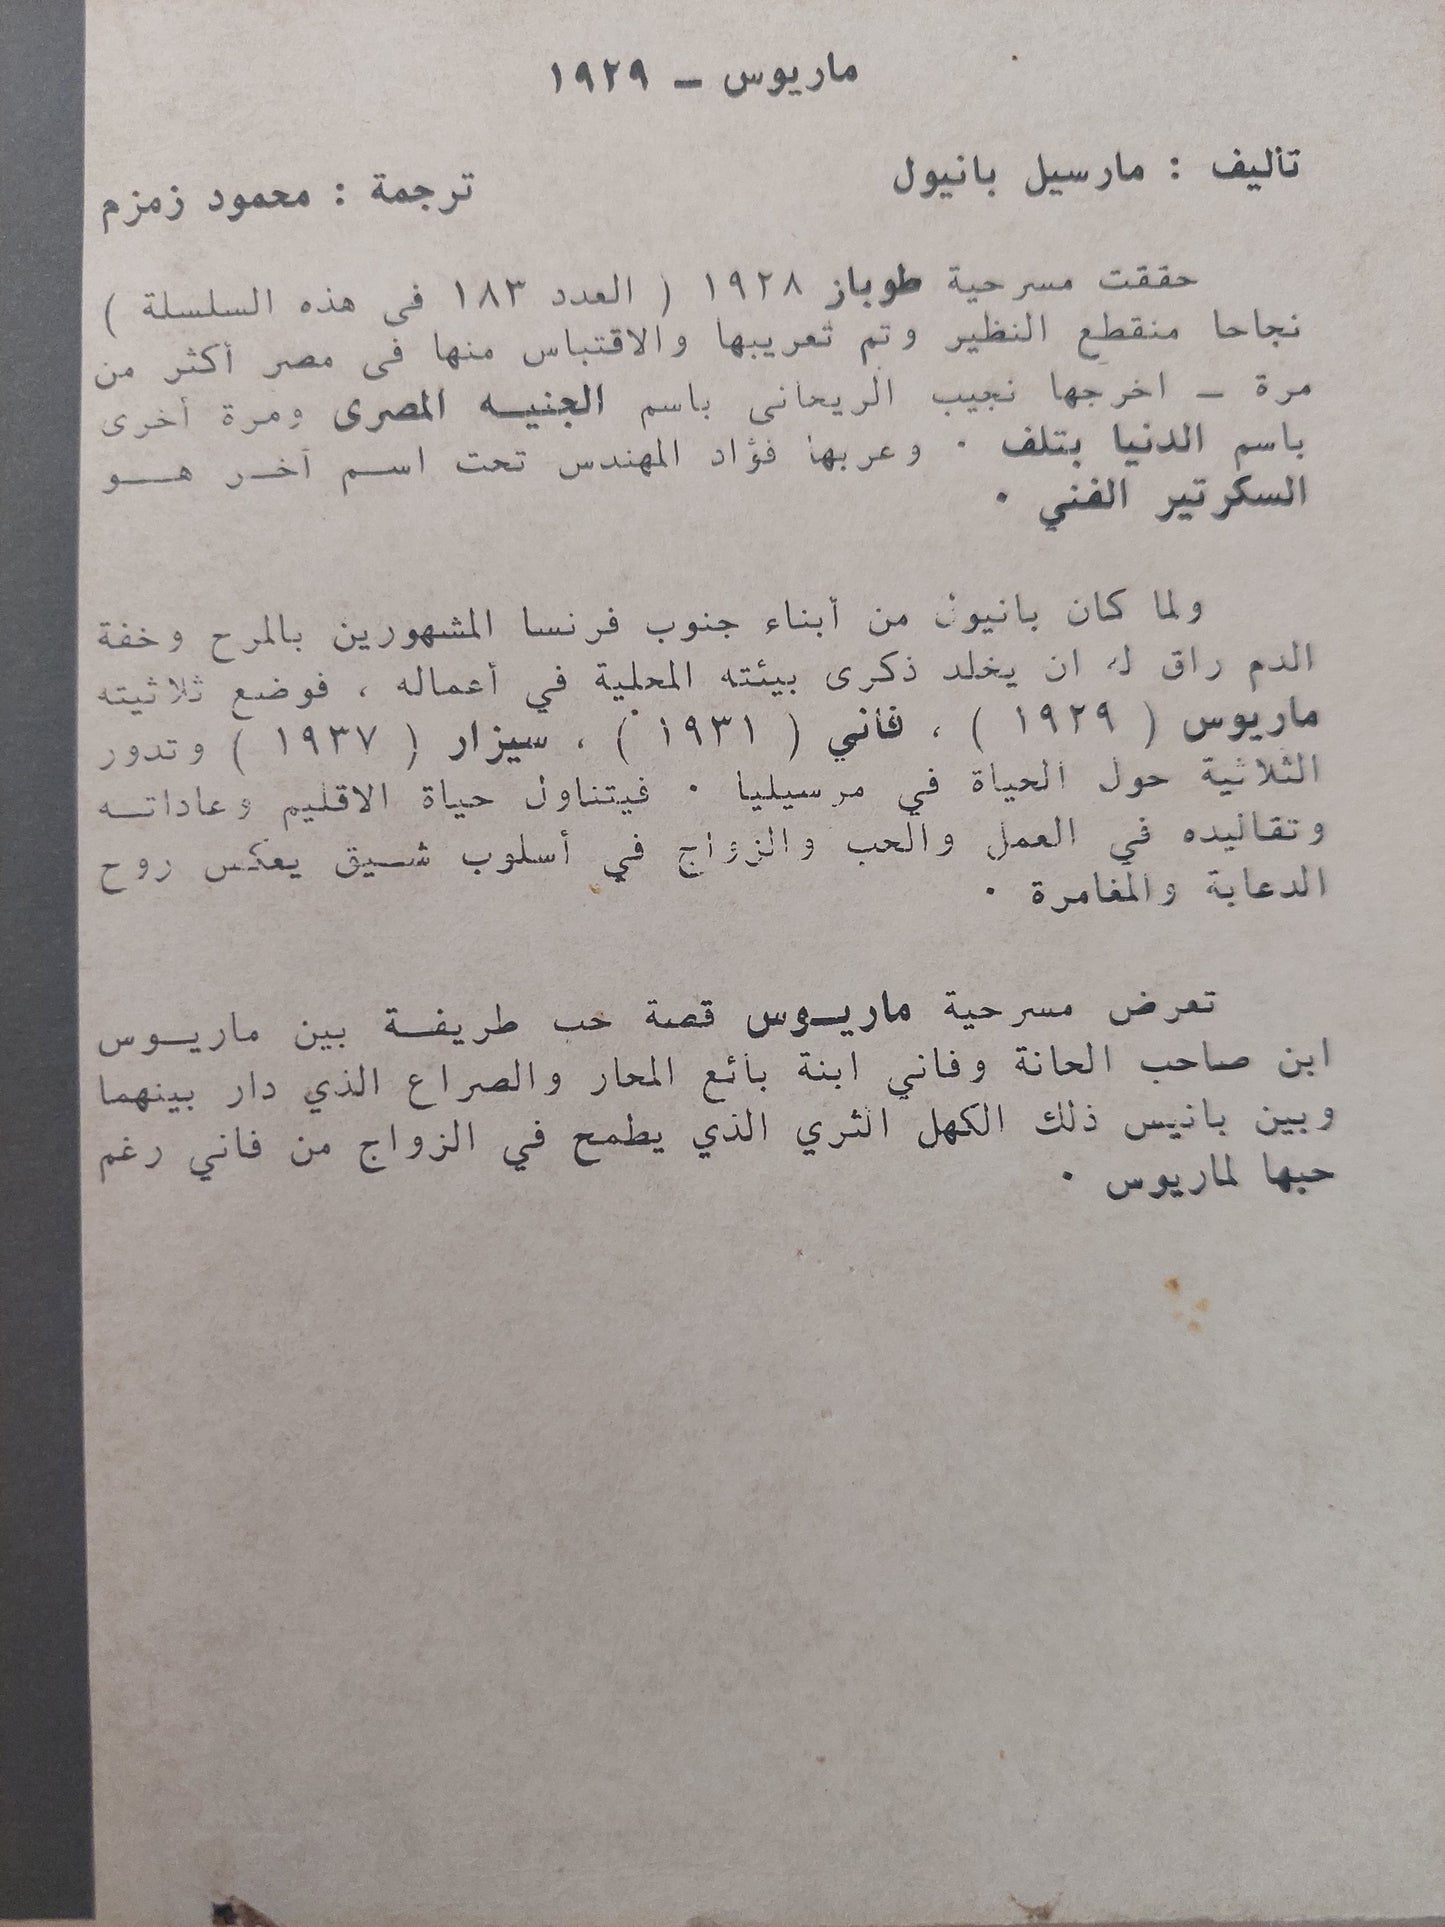 ماريوس ــ ١٩٢٩
تأليف : مارسيل بانيول
ترجمة : محمود زمزم
حققت مسرحية طوباز ١٩٢٨ ( العدد ١٨٣ فى هذه السلسلة )
نجاحا منقطع النظير وتم تعريبها والاقتباس منها فى مصر أكثر من
مرة ــ اخرجها نجيب الريحانى باسم الجنيـه المصرى ومرة أخرى
باسم الدنيا بتلف ٠ وعربها فؤاد المهندس تحت اسـم آخـر هـــو
السكرتير الفني ٠
ولما كان بانيول من أبناء جنوب فرنسا المشهورين بالمرح وخفة
الدم راق له ان يخلد ذكرى بيئته المحلية في أعماله ، فوضع ثلاثيته
ماريوس ( ١٩٢٩ ) ، فاني ( ١٩٣١ ) ، سيزار ( ١٩٣٧ ) وتدور
الثلاثية حول الحياة في مرسيليا ٠ فيتناول حياة الاقليم وعاداتـه
وتقاليده في العمل والحب والزواج في أسلوب شـيق يعكس روح
الدعابة والمغامرة ٠
تعرض مسرحية ماريـوس قصة حب طريفـة بين ماريـوس
ابن صاحب الحانة وفاني ابنة بائع المحار والصراع الذي دار بينهما
وبين بانيس ذلك الكهل الثري الذي يطمح في الزواج من فاني رغم
حبها لماريوس ٠